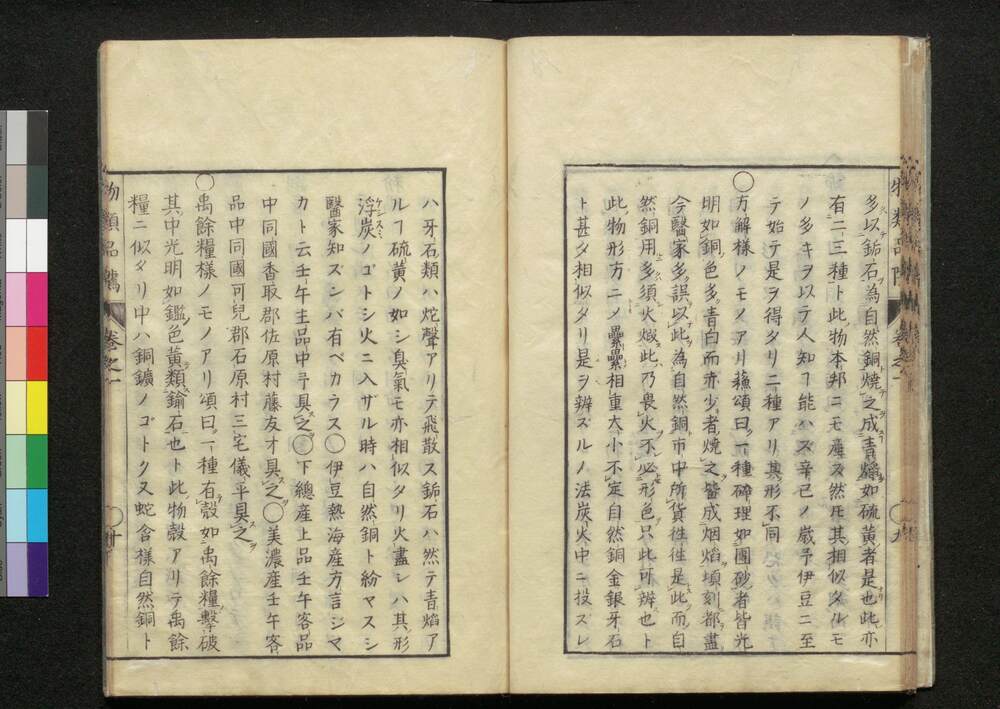 多以鉐石為自然銅焼之成青焔如硫黄者是也此亦
有二三種ト此物本邦ニモ産ス然𪜈其相似タルモ
ノ多キヲ以テ人知ヿ能ハズ辛已ノ歳予伊豆ニ至
テ始テ是ヲ得タリ二種アリ其形不同
○方解様ノモノアリ蘓頌曰一種碎理如團砂者皆光
明如銅色多青白而赤少者焼之皆成烟焰頃刻都盡
今醫家多誤以此為自然銅市中所貨徃徃是此而自
然銅用多須火煅此乃畏火不必形色只此可辨也ト
此物形方ニノ纍纍相重大小不定自然銅金銀牙石
ト甚タ相似タリ是ヲ辨ズルノ法炭火中ニ投ズレ
物類品隲 卷之一
ハ牙石類ハ炮聲アリテ飛散ス鉐石ハ然テ青焔ア
ルヿ硫黄ノ如シ臭氣モ亦相似タリ火盡レハ其形
浮炭ノゴトシ火ニ入ザル時ハ自然銅ト紛マスシ
醫家知ズンバ有ベカラス○伊豆熱海産方言シマ
カト云壬午主品中予具之○下總産上品壬午客品
中同國香取郡佐原村藤友才具之○美濃産壬午客
品中同國可兒郡石原村三宅儀平具之
○禹餘糧様ノモノアリ頌曰一種有殼如禹餘糧擊破
其中光明如鑑色黄類鍮石也ト此物殼アリテ禹餘
糧ニ似タリ中ハ銅鑛ノゴトク又蛇含様自然銅ト
物類品隲 卷之一